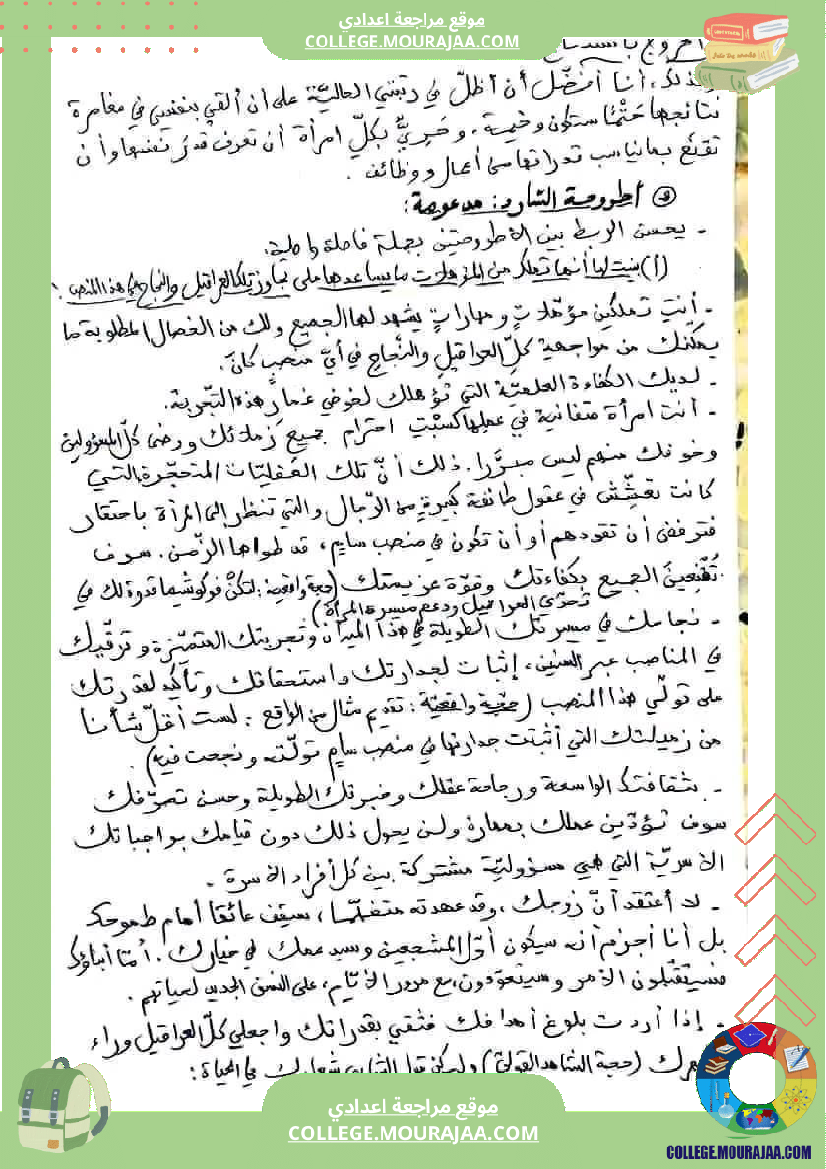 موقع مراجعة اعدادي
COLLEGE.MOURAJAA.COM
لذلك، أنا أفضّل أن أظلّ في رتبتي الحاليّة على أن ألقي بنفسي في مغامرة
نتائجها حتْمًا ستكون وخيمة. وحَرِيٌّ بكلّ امرأة أن تعرف قدرَ نفسها وأن
تقنَع بما يناسب قدراتها من أعمال ووظائف.
أطروحة السّارد: مدعومة:
- يحسن الربط بين الأطروحتين بجملة فاصلة واصلة.
(أ) بينت لها أنها تملك من المؤهلات ما يساعدها على تجاوز تلك العراقيل والنجاح في هذا المنصب:
- أنتِ تملكين مؤهّلاتٍ ومهاراتٍ يشهد لها الجميع ولك من الخصال المطلوبة ما
يمكّنك من مواجهة كلّ العراقيلِ والنّجاحِ في أيّ منصب كانَ.
- لديك الكفاءة العلميّة التي تؤهلك لخوض غمار هذه التّجربة.
- أنت امرأة متفانية في عملها كسبْتِ احترام جميعِ زملائك ورضى كلّ المسؤولين
وخوفك منهم ليس مبرَّرا. ذلك أنّ تلك العقليّات المتحجّرة التي
كانت تعشّش في عقول طائفة كبيرةٍ من الرّجال والتي تنظر إلى المرأة باحتقار
فترفض أن تقودهم أو أن تكون في منصب سامٍ، قد طواها الزّمن. سوف
تُقْنِعينَ الجميع بكفاءتك وقوّة عزيمتك (حجة واقعية: لتكنْ قدوة لك في
تحدّي العراقيل ودعم مسيرة المرأة)
- نجاحك في مسيرتك الطويلة في هذا الميدان وتجربتك المتميّزة وترقّيك
في المناصب عبر السنين، إثبات لجدارتك واستحقاقك وتأكيد لقدرتك
على تولّي هذا المنصب (حجّة واقعيّة: تقديم مثال من الواقع: لست أقلّ شأنا
من زميلتك التي أثبتت جدارتها في منصب سامٍ تولّته ونجحت فيه).
- بثقافتك الواسعة ورجاحة عقلك وخبرتك الطويلة وحسن تصرّفك
سوف تؤدّين عملك بمهارة ولن يحول ذلك دون قيامك بواجباتك
الأسريّة التي هي مسؤوليّة مشتركة بين كل أفراد الأسرة.
- لا أعتقد أنّ زوجك، وقد عهدته متفهّما، سيقف عائقا أمام طموحك
بل أنا أجزم أنه سيكون أوّل المشجعين وسيدعمك في خيارك. أمّا أبناؤك
فسيتقبّلون الأمر وسيتعوّدون، مع مرور الأيّام، على النسق الجديد لحياتهم.
- إذا أردت بلوغ أهدافك فثقي بقدراتك واجعلي كلّ العراقيل وراء
ظهرك (حجة الشاهد القولي) وليكن قول الشابي شعارك في الحياة:
موقع مراجعة اعدادي
COLLEGE.MOURAJAA.COM
COLLEGE.MOURAJAA.COM